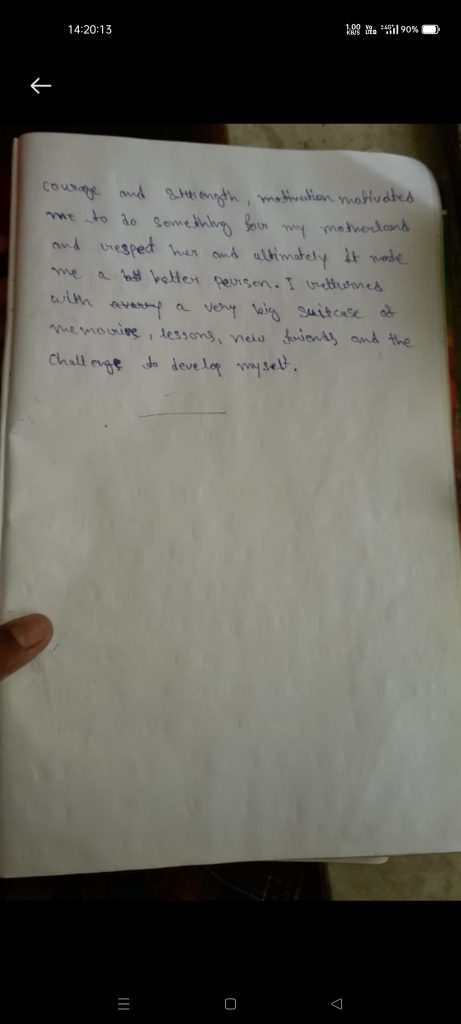 14:20:13
1.00 KB/S Vo LTE 4G 90%
courage and strength, motivation motivated
me to do something for my motherland
and respect her and ultimately it made
me a better person. I returned
with a very big suitcase of
memories, lessons, new friends and the
challenge to develop myself.